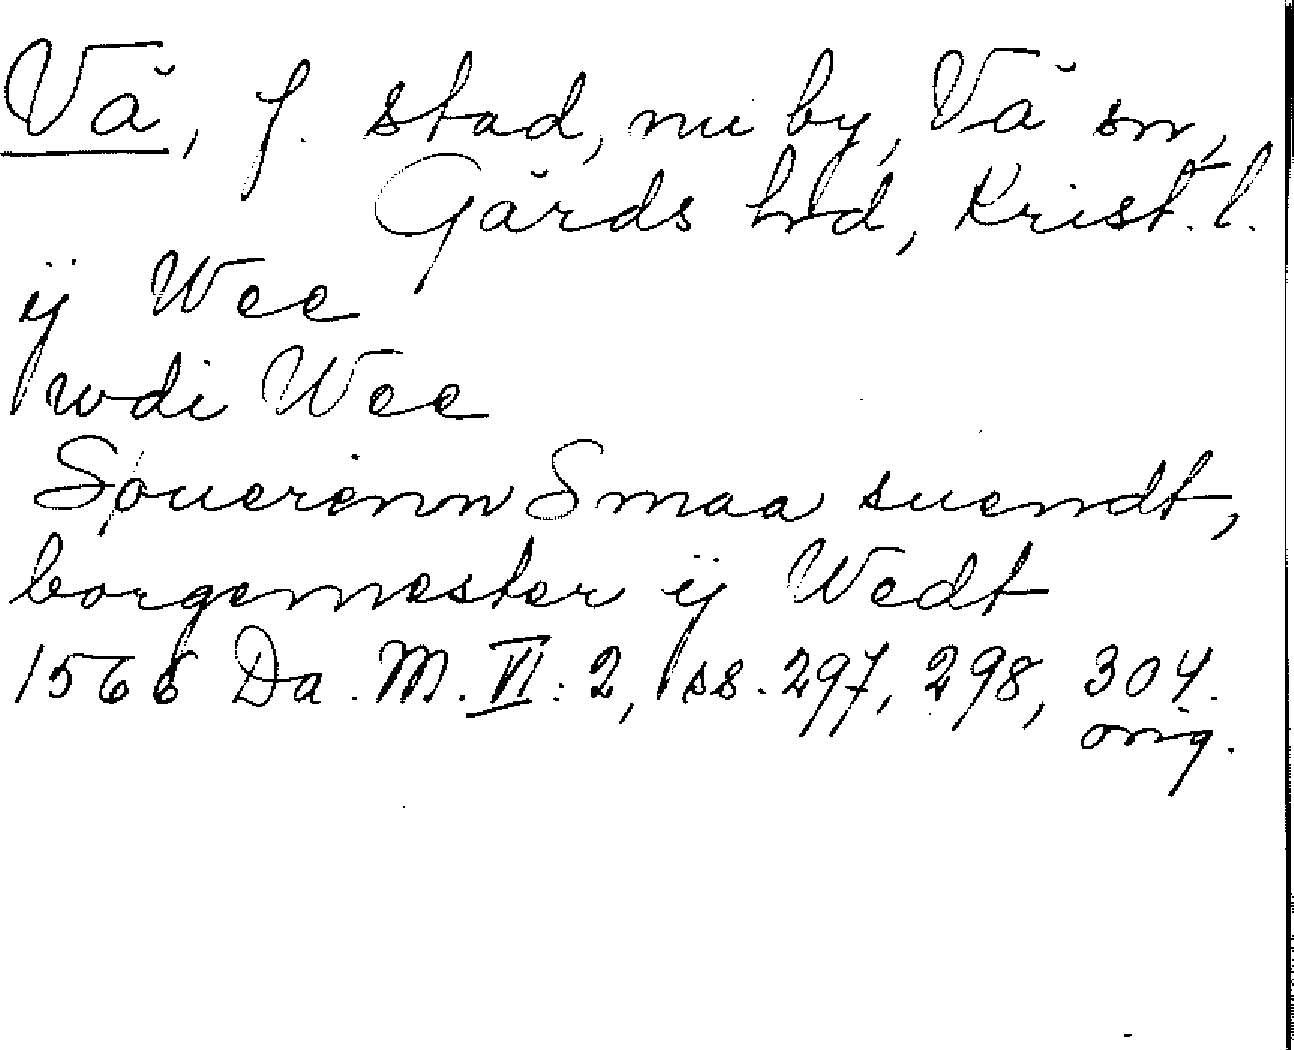 Vå, f. stad, nu by, Vå sn,
Gärds hrd, Krist. l.
ÿ Wee
wdi Wee
Søuerenn Smaa suendt,
borgemester ÿ Wedt
1566 Da. M. VI: 2, ss. 297, 298, 304.
orig.